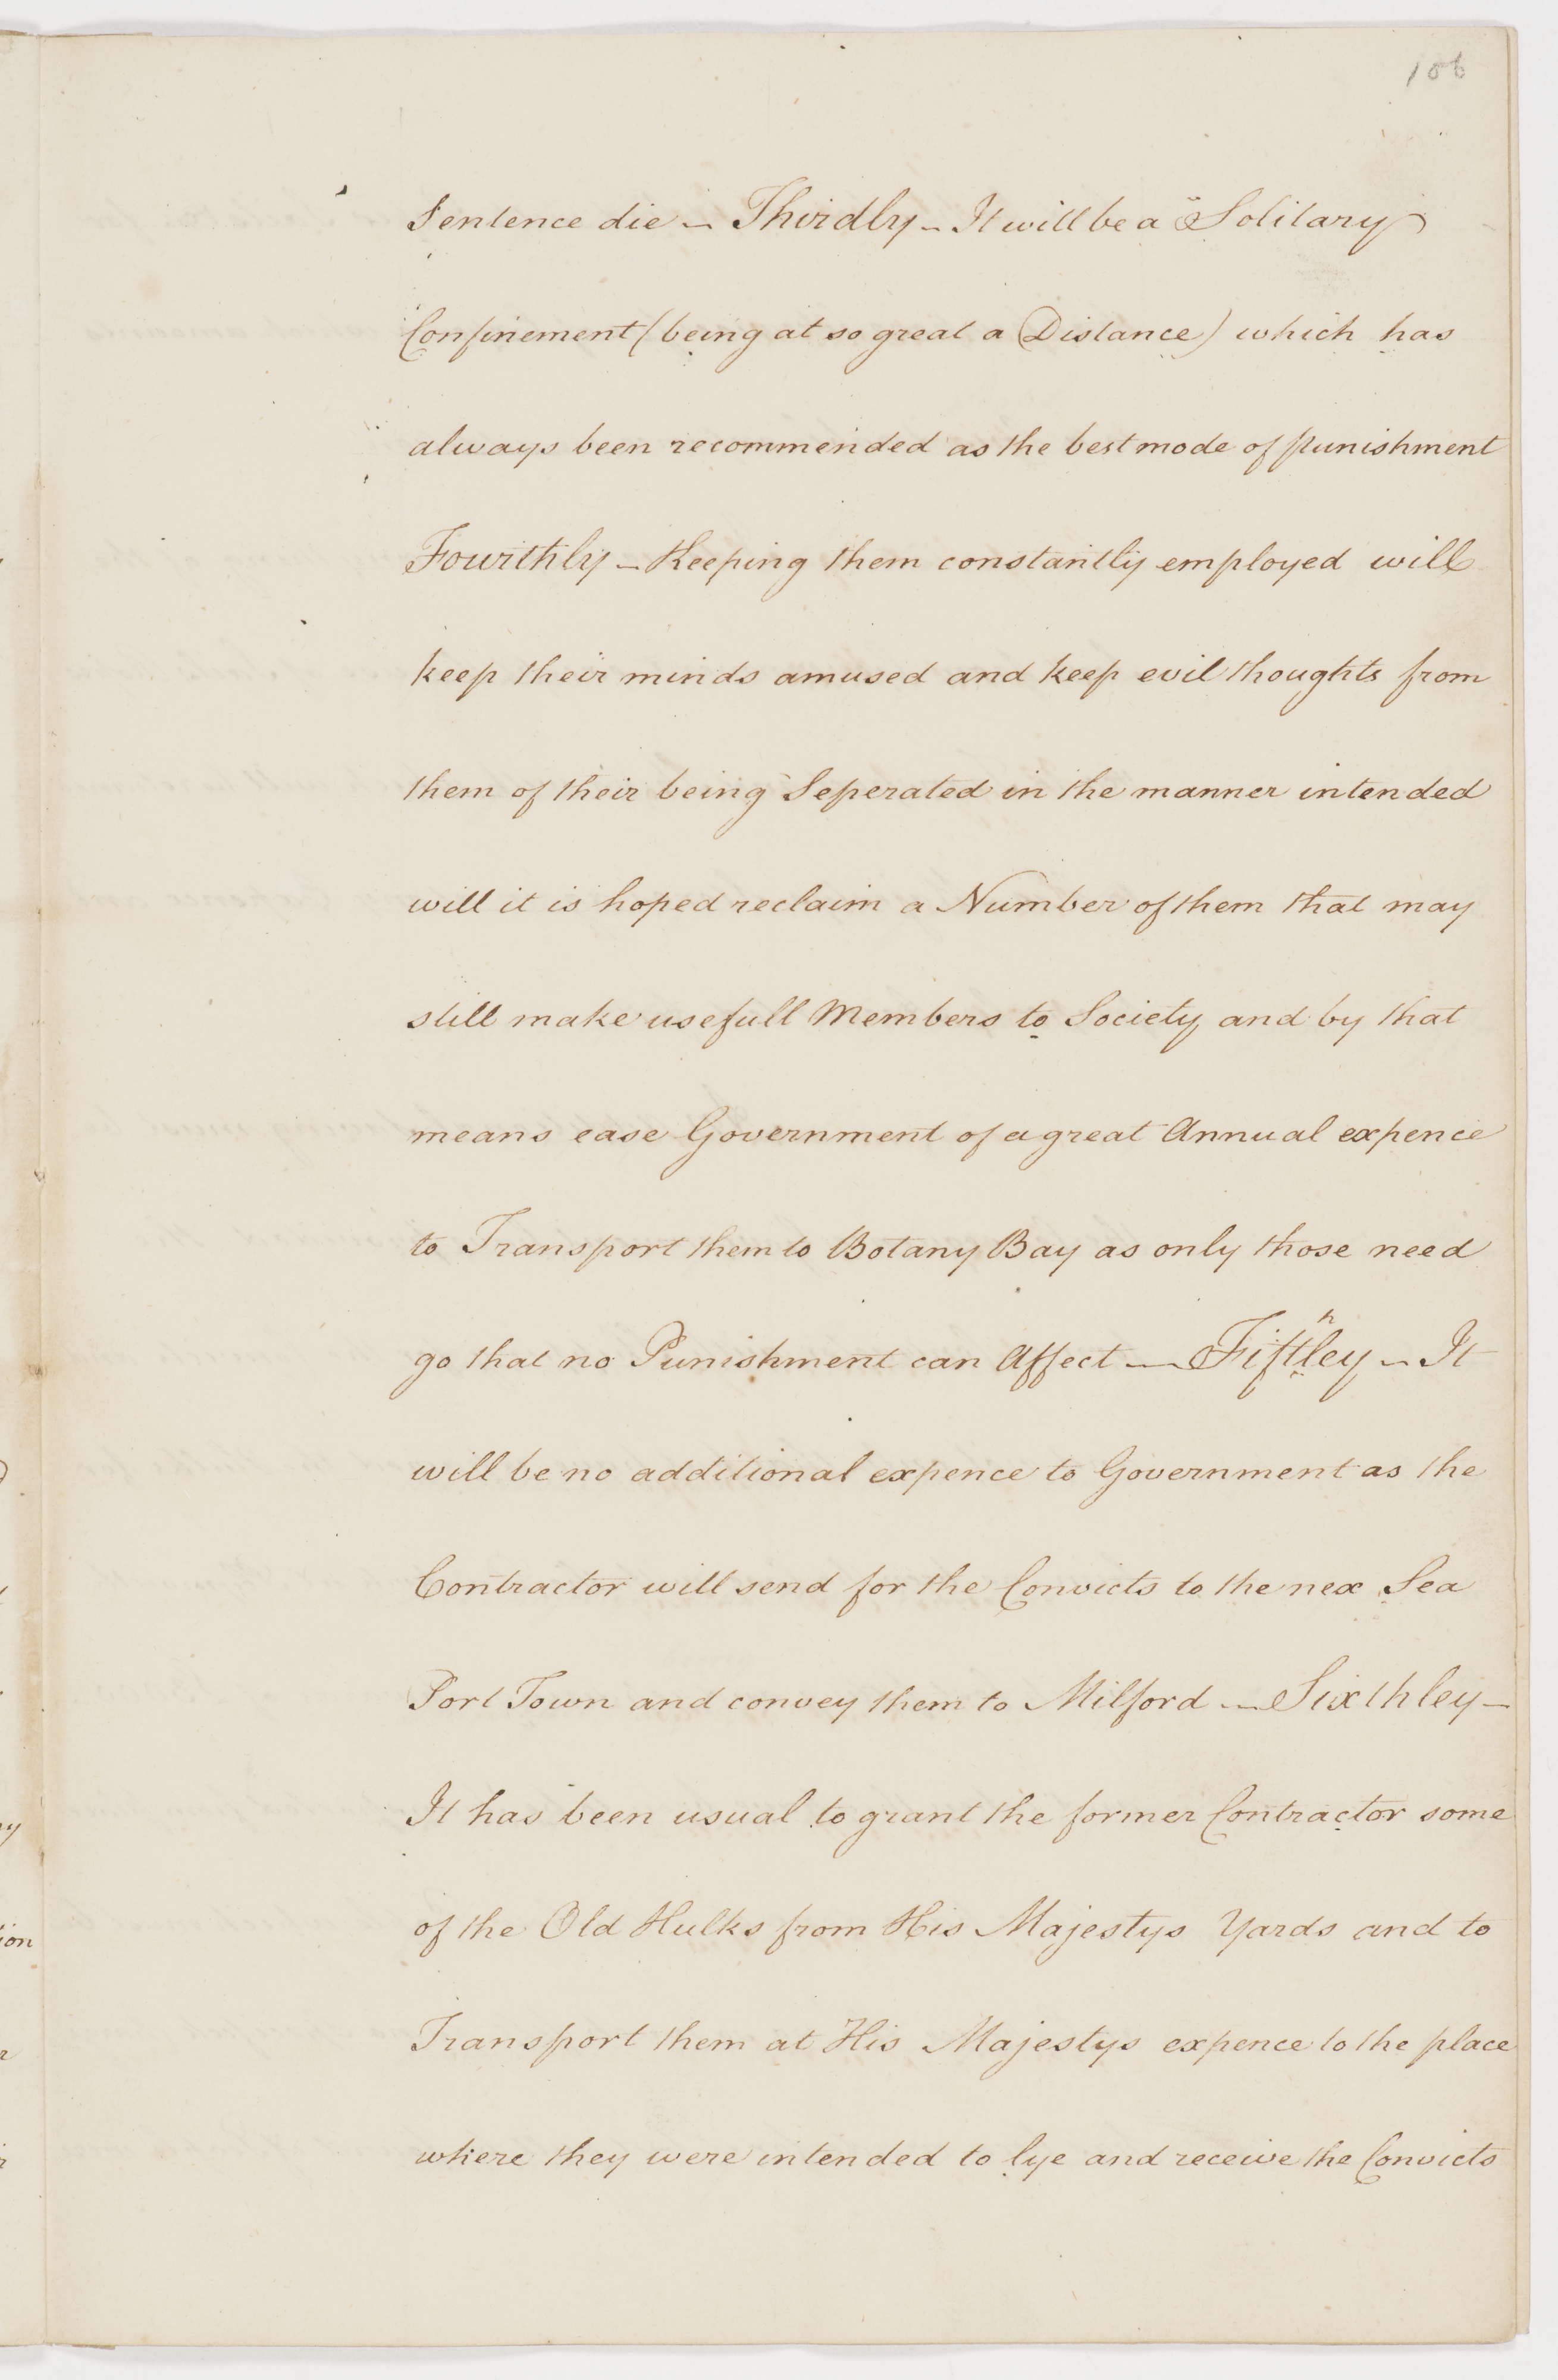 106
Sentence die — Thirdly — It will be a Solitary
Confinement (being at so great a Distance) which has
always been recommended as the best mode of punishment
Fourthly — Keeping them constantly employed will
keep their minds amused and keep evil thoughts from
them of their being Seperated in the manner intended
will it is hoped reclaim a Number of them that may
still make usefull Members to Society and by that
means ease Government of a great Annual expence
to Transport them to Botany Bay as only those need
go that no Punishment can Affect — Fifthley — It
will be no additional expence to Government as the
Contractor will send for the Convicts to the nex Sea
Port Town and convey them to Milford — Sixthley —
It has been usual to grant the former Contractor some
of the Old Hulks from His Majestys Yards and to
Transport them at His Majestys expence to the place
where they were intended to lye and receive the Convicts